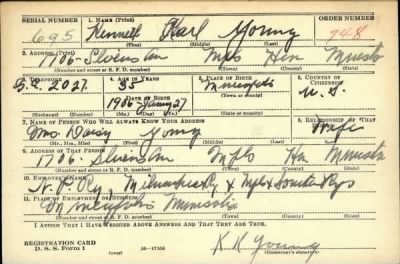 SERIAL NUMBER 1. NAME (Print) ORDER NUMBER
695 Kenneth Karl Young 748
(First) (Middle) (Last)
2. ADDRESS (Print)
1706 Mpls Hen Minnesota
(Number and street or R. F. D. number) (Town) (County) (State)
3. TELEPHONE 4. AGE IN YEARS 5. PLACE OF BIRTH 6. COUNTRY OF CITIZENSHIP
2027 35 Minneapolis U. S.
DATE OF BIRTH (Town or county)
1906 27
(State or country)
7. NAME OF PERSON WHO WILL ALWAYS KNOW YOUR ADDRESS 8. RELATIONSHIP OF THAT PERSON
Mrs Daisy Young Wife
(Mr., Mrs., Miss) (First) (Middle) (Last)
9. ADDRESS OF THAT PERSON
1706 Mpls Hen Minnesota
(Number and street or R. F. D. number) (Town) (County) (State)
10. EMPLOYER'S NAME
N. P. Ry, Milwaukee Ry & Mpls &
11. PLACE OF EMPLOYMENT OR BUSINESS
Minneapolis Minnesota
(Number and street or R. F. D. number) (Town) (County) (State)
I AFFIRM THAT I HAVE VERIFIED ABOVE ANSWERS AND THAT THEY ARE TRUE.
REGISTRATION CARD K K Young
D. S. S. Form 1 16—17105 (Registrant's signature)